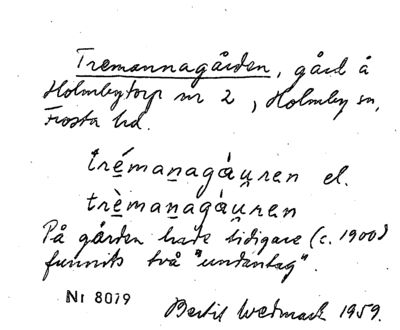 Tremannagården, gård å
Holmbytorp nr 2, Holmby sn,
Frosta hd.
trémanagáu̯ren el.
trèmanagáu̯ren
På gården hade tidigare (c. 1900)
funnits två "undantag".
Nr 8079
Bertil Wedmark 1959.